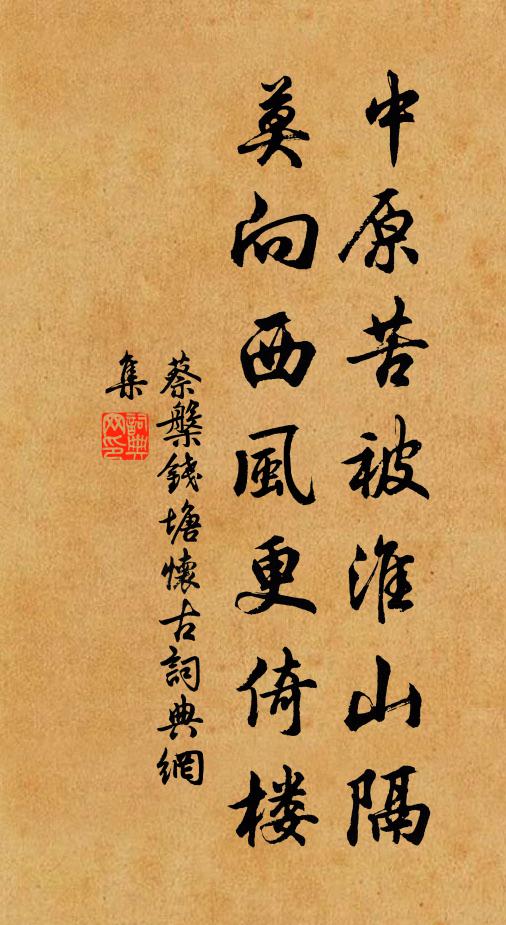 中原苦被淮山隔
莫向西風更倚楼
蔡槃錢塘懷古詞典網
集
詞典網印